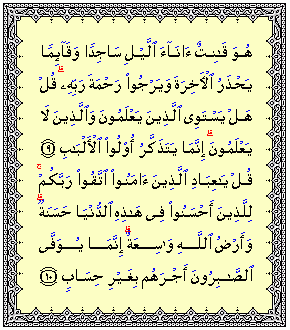 هُوَ قَـٰنِتٌ ءَانَآءَ ٱلَّيْلِ سَاجِدًا وَقَآئِمًا
يَحْذَرُ ٱلْـَٔاخِرَةَ وَيَرْجُوا۟ رَحْمَةَ رَبِّهِۦ ۗ قُلْ
هَلْ يَسْتَوِى ٱلَّذِينَ يَعْلَمُونَ وَٱلَّذِينَ لَا
يَعْلَمُونَ ۗ إِنَّمَا يَتَذَكَّرُ أُو۟لُوا۟ ٱلْأَلْبَـٰبِ ٩
قُلْ يَـٰعِبَادِ ٱلَّذِينَ ءَامَنُوا۟ ٱتَّقُوا۟ رَبَّكُمْ ۚ
لِلَّذِينَ أَحْسَنُوا۟ فِى هَـٰذِهِ ٱلدُّنْيَا حَسَنَةٌ ۗ
وَأَرْضُ ٱللَّهِ وَٰسِعَةٌ ۗ إِنَّمَا يُوَفَّى
ٱلصَّـٰبِرُونَ أَجْرَهُم بِغَيْرِ حِسَابٍ ١٠